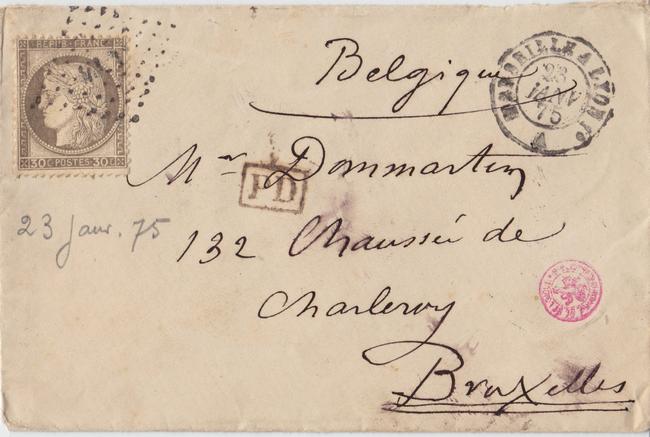 REPUB·FRANC·
30C·POSTES·30C
Belgique
MARSEILLE A LYON
23
JANV
75
Mr Dommartin
PD
23 Janv. 75
132 Chaussée de
Charleroy
Bruxelles